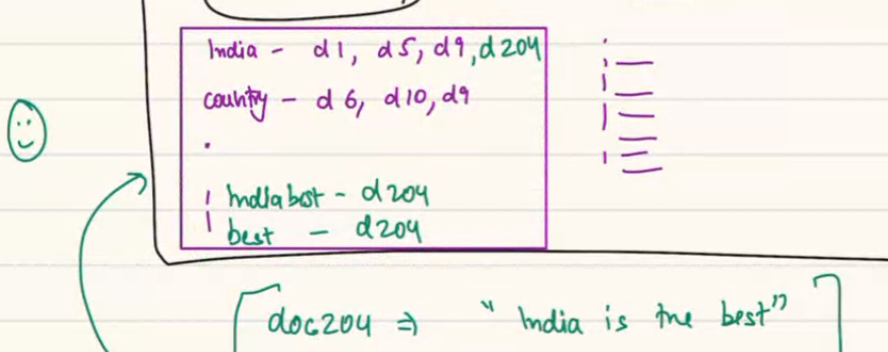 India - d1, d5, d9, d204
country - d6, d10, d9
India best - d204
best - d204
doc204 ⇒ "India is the best"